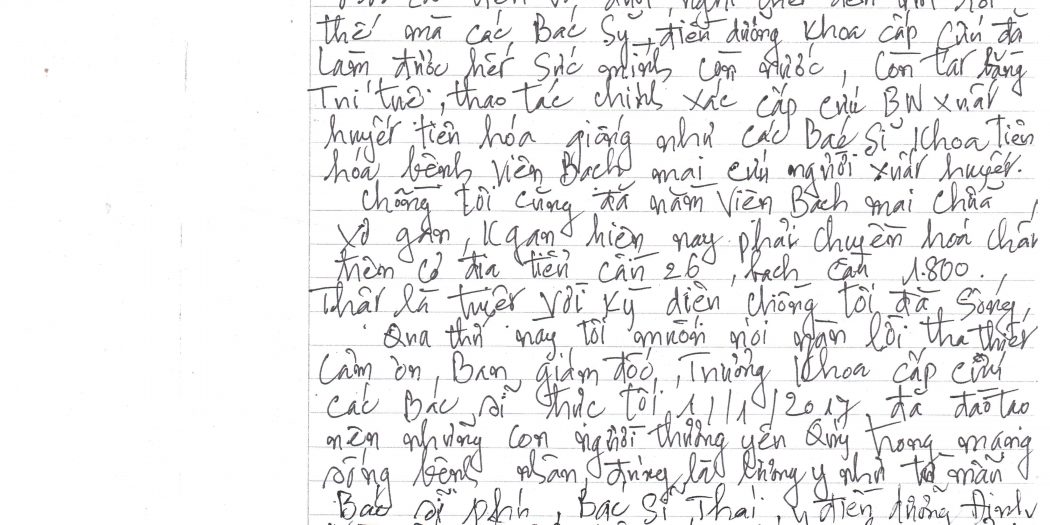 thế mà các Bác Sỹ, điều dưỡng khoa cấp cứu đã
làm được hết sức mình còn nước, còn tát bằng
Trí tuệ, thao tác chính xác cấp cứu BN xuất
huyết tiêu hóa giống như các Bác Sĩ khoa Tiêu
hóa bệnh viện Bạch mai cứu người xuất huyết.
Chồng tôi cũng đã nằm viện Bạch mai chữa
vỡ gan, K gan hiện nay phải chuyển hoá chất
thêm cơ địa tiểu cầu 26, bạch cầu 1.800.,
Thật là tuyệt vời kỳ diệu chồng tôi đã sống,
Qua thư này tôi muốn nói ngàn lời tha thiết
Cảm ơn, Ban giám đốc, Trưởng khoa cấp cứu
các Bác sĩ trực tối 1/1/2017 đã đào tạo
nên những con người thương yêu Quý trọng mạng
sống bệnh nhân, đúng là lương y như từ mẫu
Bác sĩ phú, Bác Sĩ Thái, điều dưỡng Định,